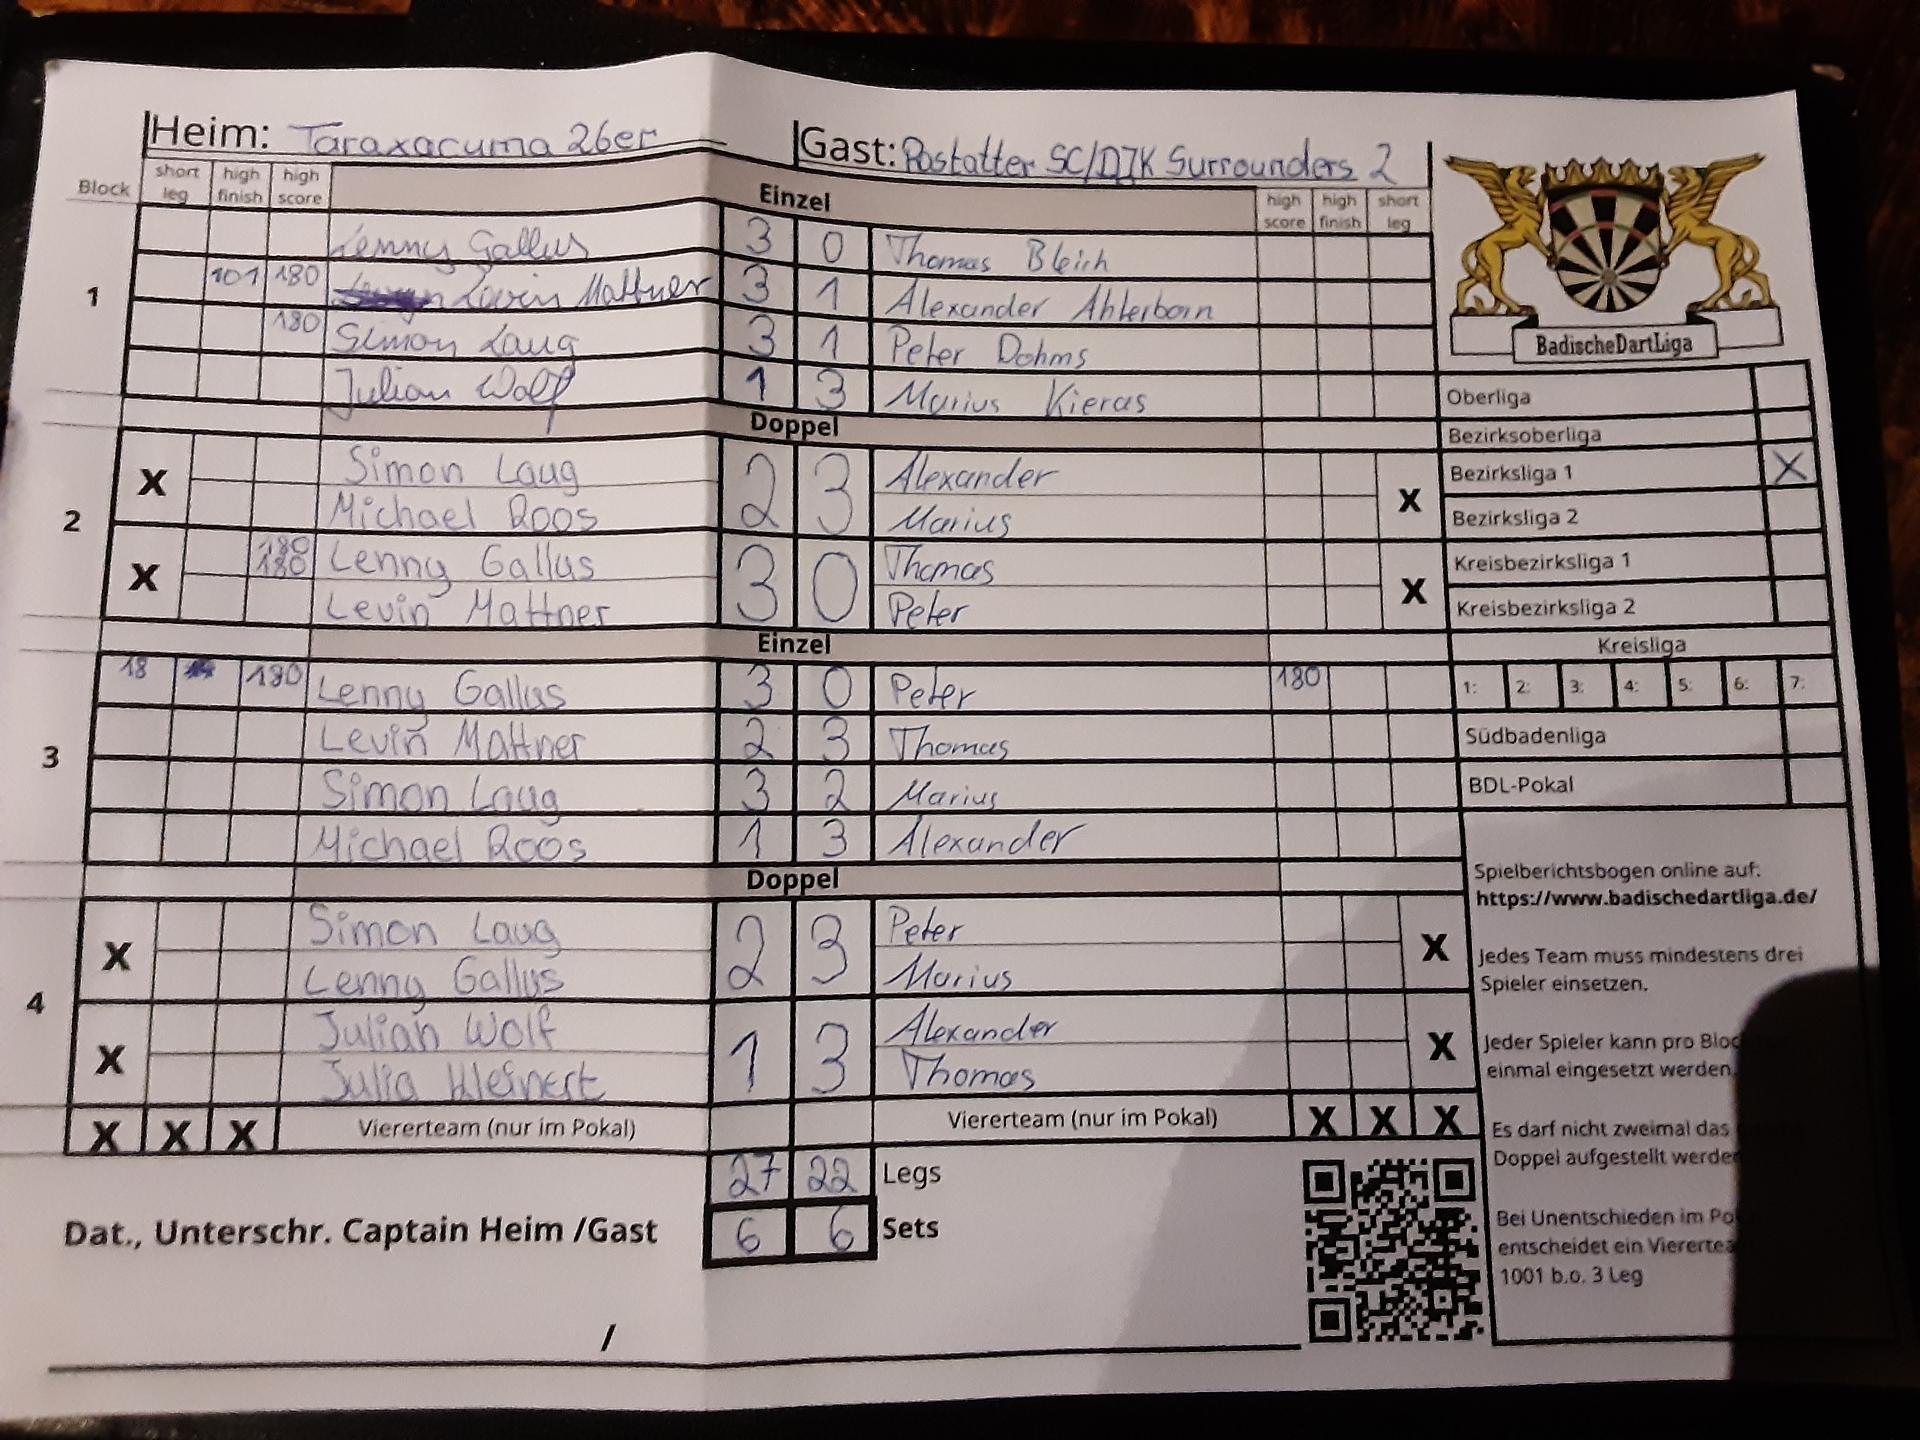 Heim: Taraxacuma 26er Gast: Rastatter SC/DJK Surrounders 2
Block short leg high finish high score Einzel high score high finish short leg
1
Lenny Gallus 3 0 Thomas Bleich
101 180 Levin Mattner 3 1 Alexander Ahlerborn
180 Simon Laug 3 1 Peter Dohms
Julian Wolf 1 3 Marius Kieras
Doppel
2
X Simon Laug 2 3 Alexander X
Michael Roos Marius
X 180 180 Lenny Gallus 3 0 Thomas X
Levin Mattner Peter
Einzel
3
18 180 Lenny Gallus 3 0 Peter 180
Levin Mattner 2 3 Thomas
Simon Laug 3 2 Marius
Michael Roos 1 3 Alexander
Doppel
4
X Simon Laug 2 3 Peter X
Lenny Gallus Marius
X Julian Wolf 1 3 Alexander X
Julia Kleinert Thomas
X X X Viererteam (nur im Pokal) Viererteam (nur im Pokal) X X X
27 22 Legs
6 6 Sets
Dat., Unterschr. Captain Heim /Gast
/
BadischeDartLiga
Oberliga
Bezirksoberliga
Bezirksliga 1 X
Bezirksliga 2
Kreisbezirksliga 1
Kreisbezirksliga 2
Kreisliga
1: 2: 3: 4: 5: 6: 7:
Südbadenliga
BDL-Pokal
Spielberichtsbogen online auf:
https://www.badischedartliga.de/
Jedes Team muss mindestens drei
Spieler einsetzen.
Jeder Spieler kann pro Block
einmal eingesetzt werden.
Es darf nicht zweimal das
Doppel aufgestellt werden
Bei Unentschieden im Po
entscheidet ein Viererтea
1001 b.o. 3 Leg